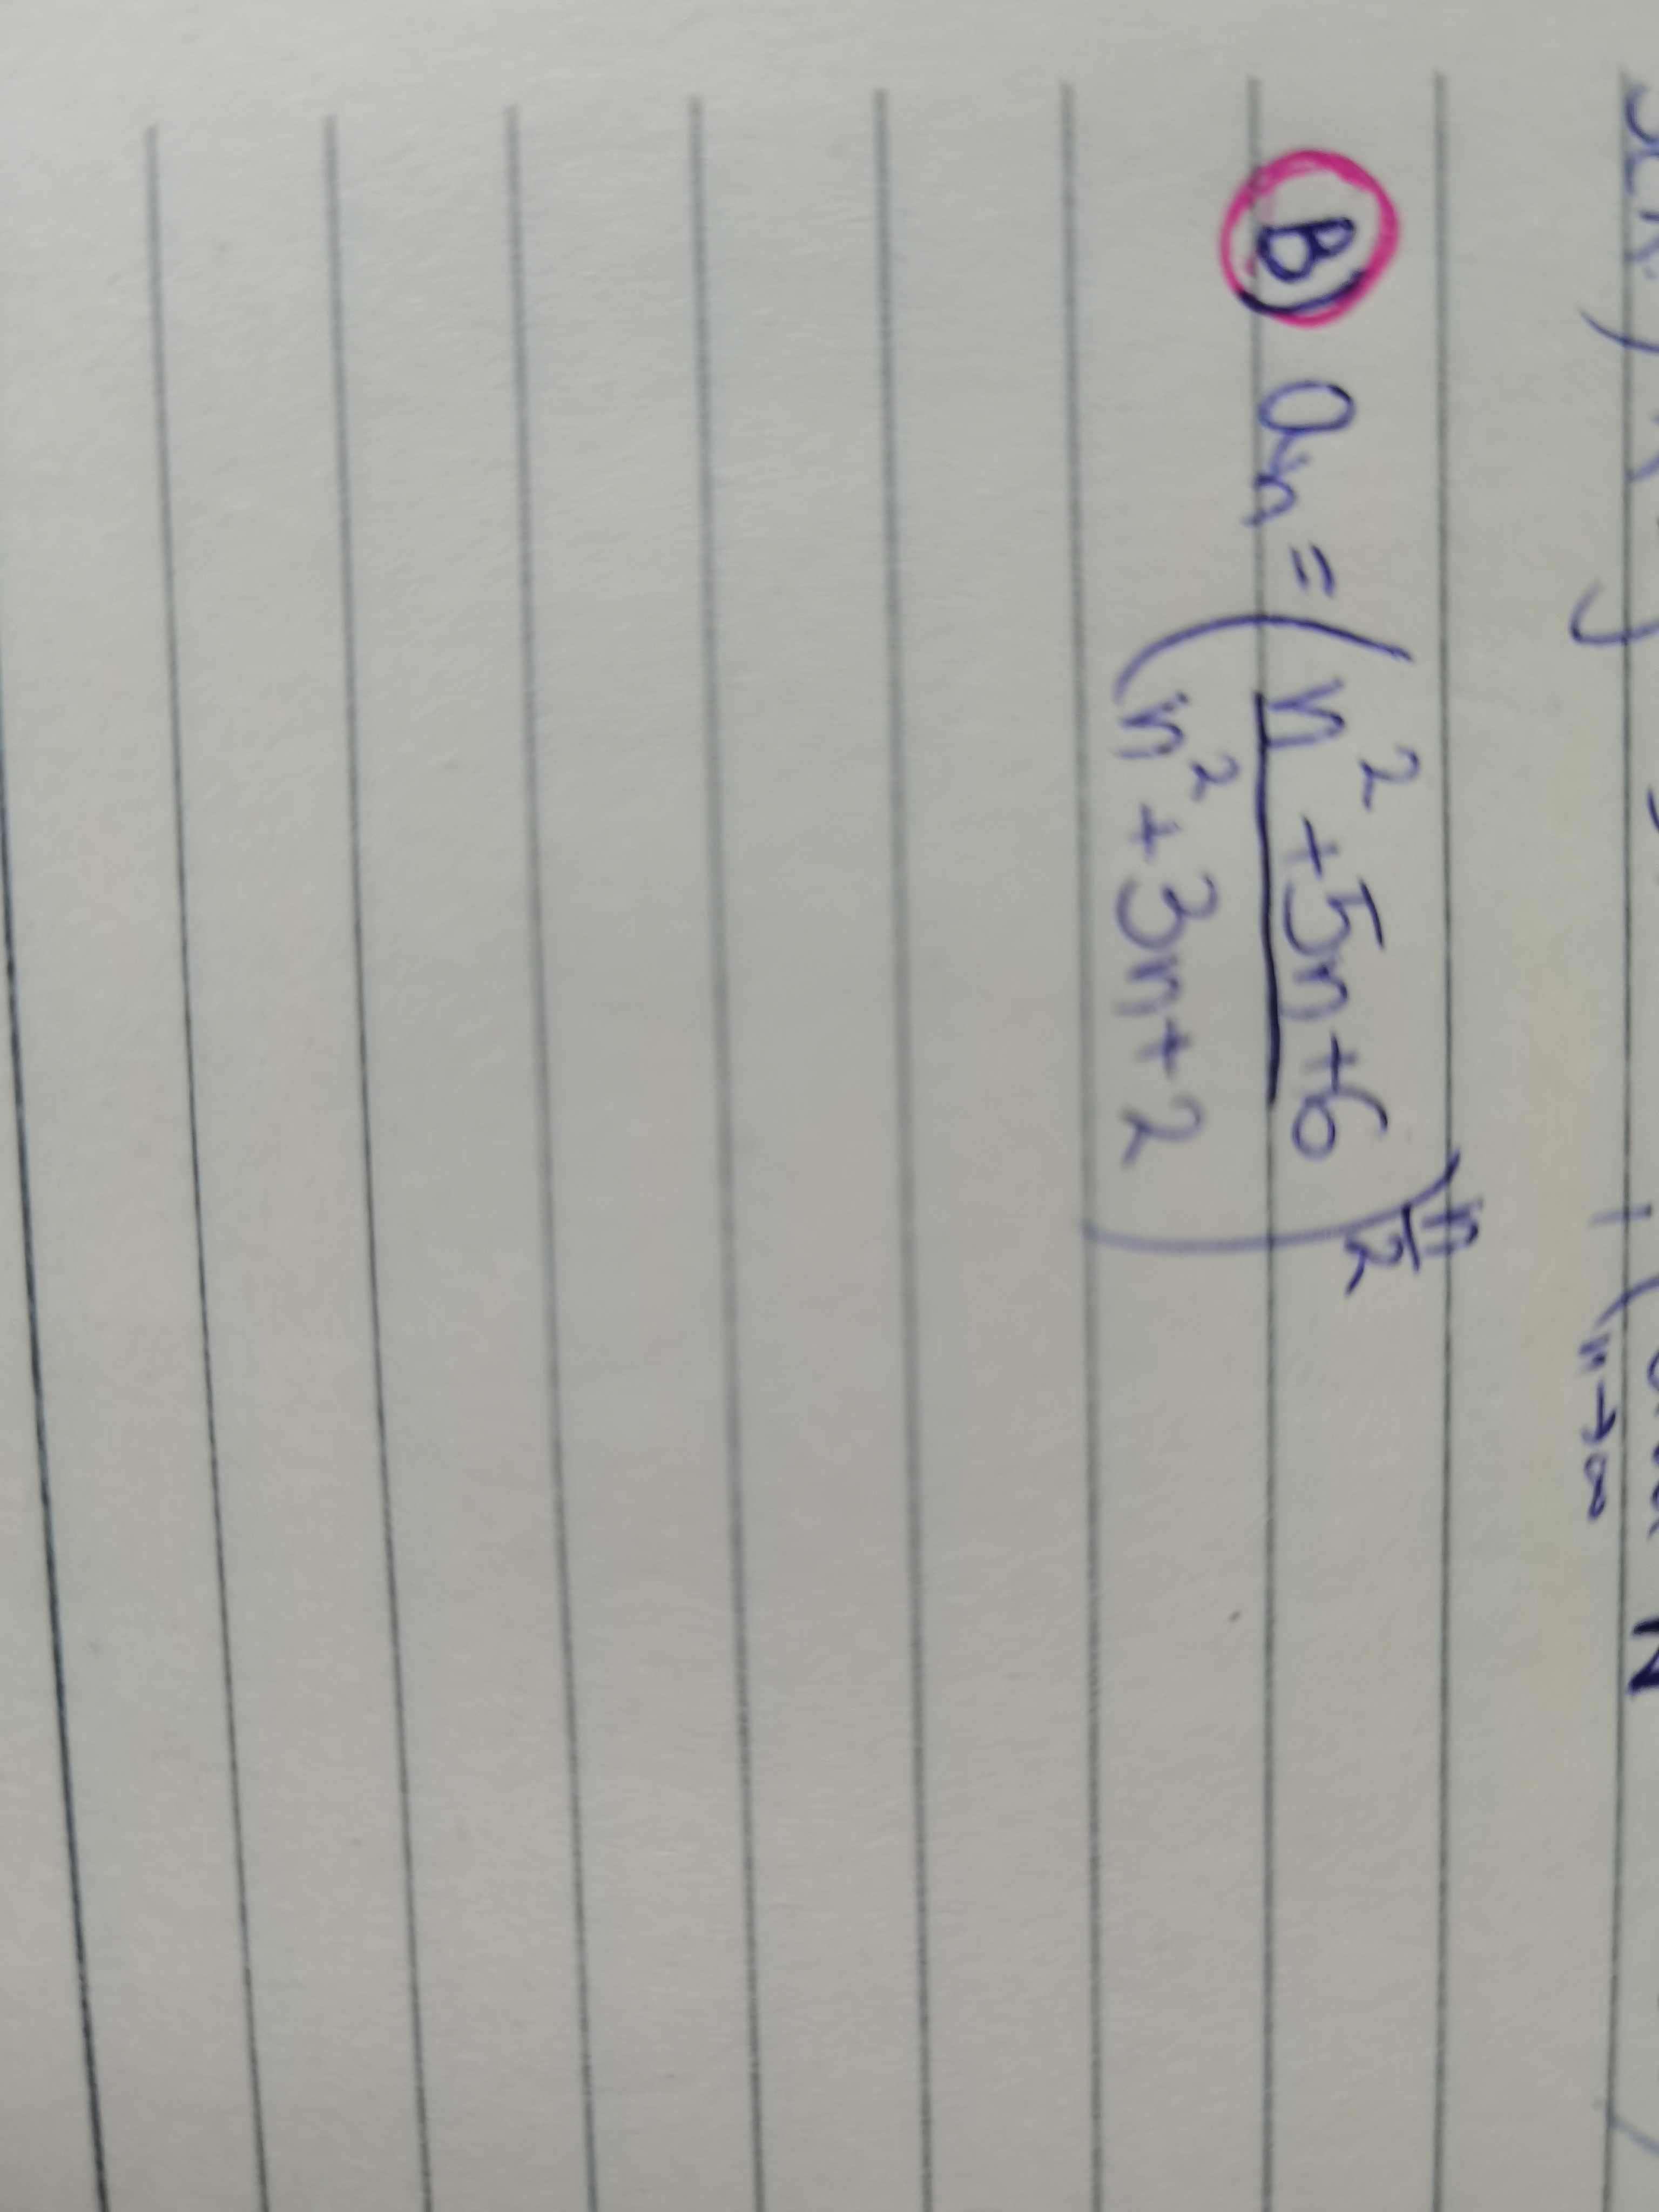 n→∞ N
B) an = ( n² + 5n + 6 / n² + 3n + 2 )^(n/2)